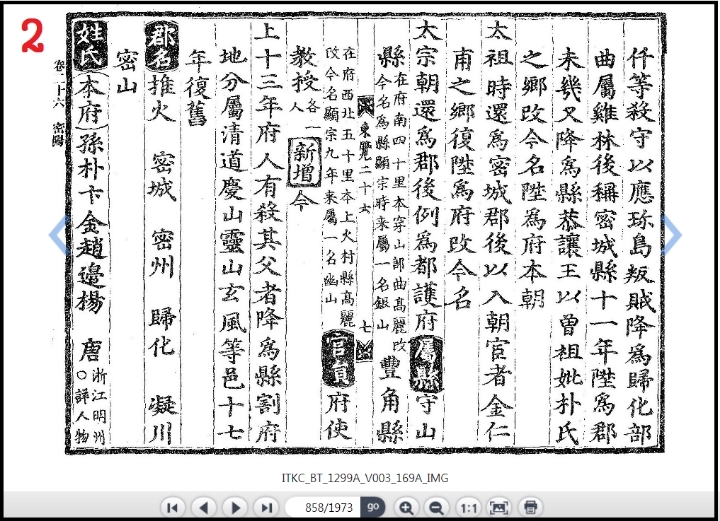 2
仟等殺守以應珎島叛賊降爲歸化部
曲屬雞林後稱密城縣十一年陞爲郡
未幾又降爲縣恭讓王以曾祖妣朴氏
之鄕改今名陞爲府本朝
太祖時還爲密城郡後以入朝宦者金仁
甫之鄕復陞爲府改今名
太宗朝還爲郡後例爲都護府 屬縣 守山
縣 在府南四十里本穿山部曲高麗改今名爲縣顯宗時來屬一名銀山 豐角縣
東覽二十六 七
在府西北五十里本上火村縣高麗改今名顯宗九年來屬一名幽山 官員 府使
教授 各一人 新增 今
上十三年府人有殺其父者降爲縣割府
地分屬清道慶山靈山玄風等邑十七
年復舊
郡名 推火 密城 密州 歸化 凝川
密山
姓氏 本府 孫朴卞金趙邊楊 唐 浙江明州○詳人物
卷二十六 密陽
ITKC_BT_1299A_V003_169A_IMG
858/1973 go 1:1